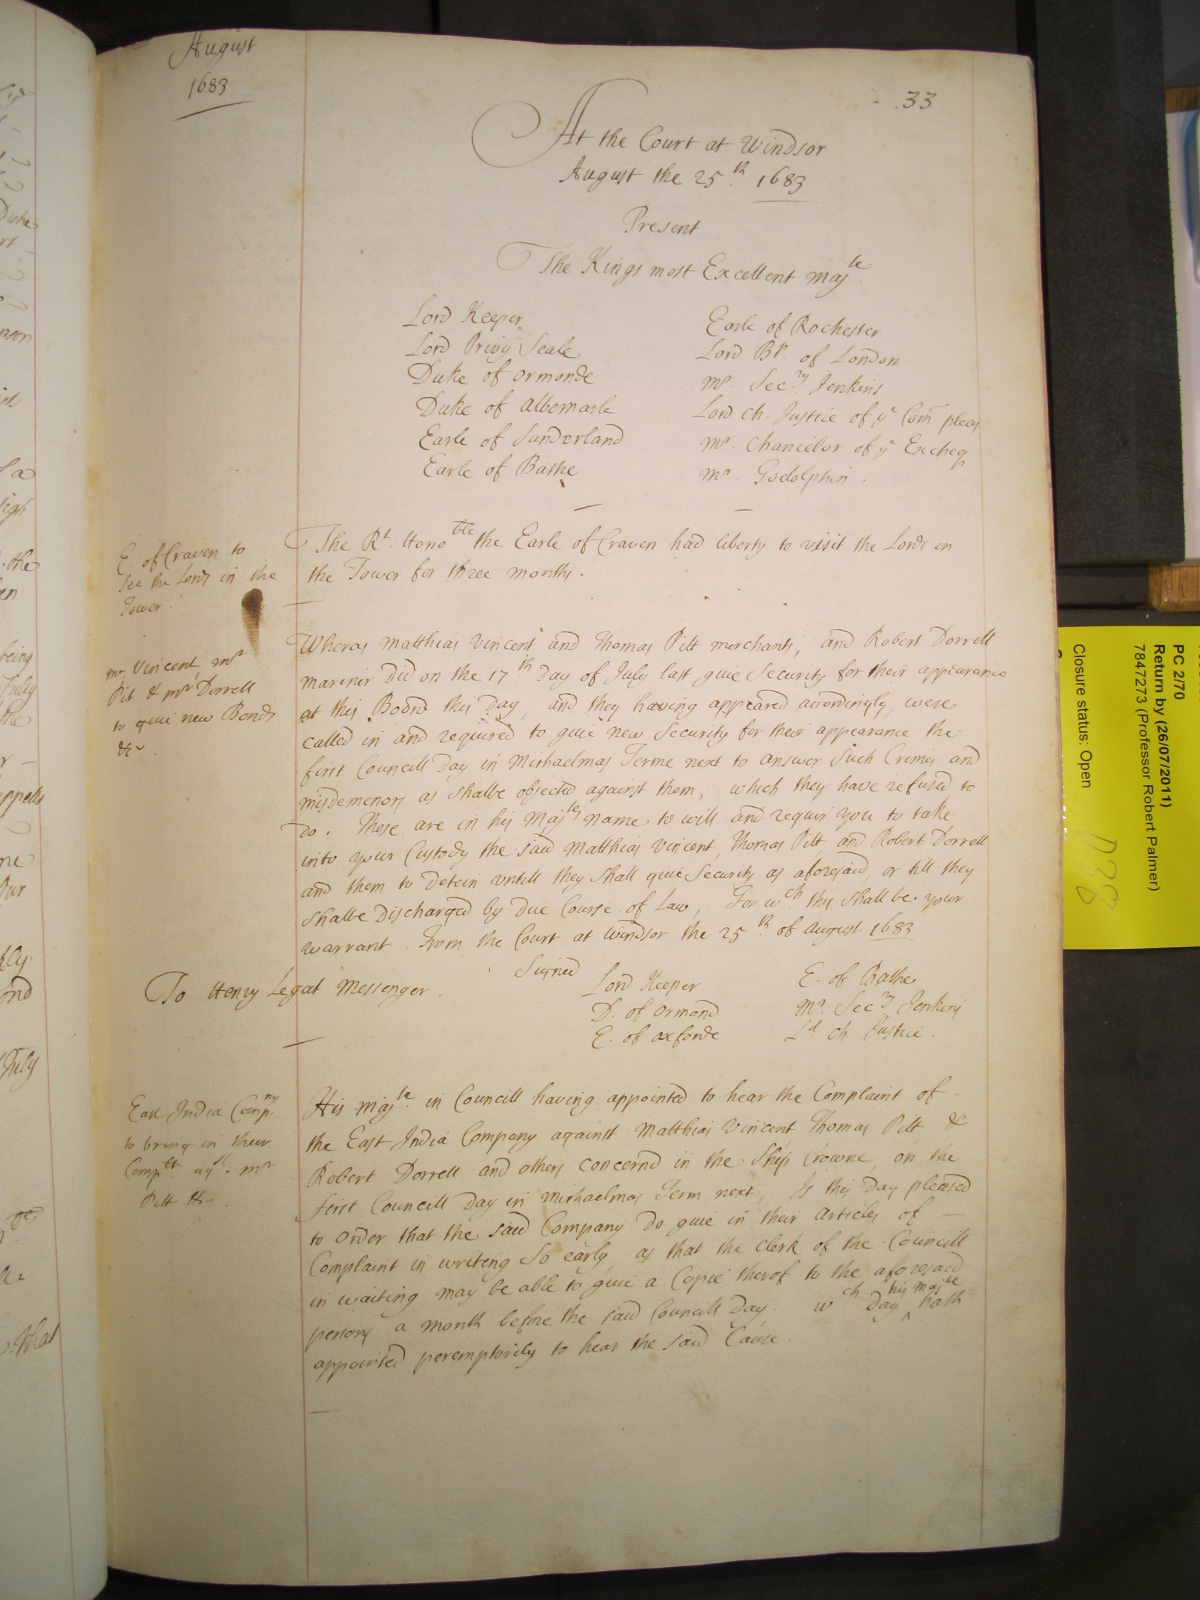 August
1683
33
At the Court at Windsor
August the 25th. 1683
Present
The Kings most Excellent Majte.
Lord Keeper
Lord Privy Seale
Duke of Ormonde
Duke of Albemarle
Earle of Sunderland
Earle of Bathe
Earle of Rochester
Lord Bp. of London
Mr. Secry Jenkins
Lord Ch. Justice of ye Com pleas
Mr. Chancelor of ye Excheq
Mr Godolphin.
E. of Craven to
see the Lords in the
Tower.
The Rt. Honoble the Earle of Craven had liberty to visit the Lords in
the Tower for three months.
Mr Vincent Mr
Pit & Mr Dorrell
to give new Bonds
&c.
Wheras Matthias Vincent and Thomas Pitt merchants, and Robert Dorrell
mariner did on the 17th day of July last give Security for their appearance
at this Board this Day, and they having appeared accordingly, were
called in and required to give new Security for their appearance the
first Councill Day in Michaelmas Terme next to answer Such Crimes and
misdemenors as shalbe objected against them, which they have refused to
do. These are in his Majtes name to will and require you to take
into your Custody the said Matthias Vincent, Thomas Pitt and Robert Dorrell
and them to Detein untill they Shall give Security as aforesaid, or till they
shalbe Discharged by due Course of Law, For wch this Shall be your
warrant. From the Court at Windsor the 25th. of August 1683
Signed
To Henry Legat Messenger.
Lord Keeper
D. of Ormond
E. of oxforde
E. of Bathe
Mr. Secry Jenkins
Ld Ch. Justice.
East India Compny
to bring in their
Complt agst Mr
Pitt &c.
His Majte. in Councill having appointed to hear the Complaint of
the East India Company against Matthias Vincent Thomas Pitt &
Robert Dorrell and others concernd in the Ship Crowne, on the
first Councill Day in Michaelmas Term next, Is this Day pleased
to order that the said Company Do give in their Articles of
Complaint in writing So early as that the Clerk of the Councill
in waiting may be able to give a Copie therof to the aforesaid
persons a month before the said Councill Day wch Day ^ his Majte hath
appointed peremptorily to hear the said Cause.
PC 2/70
Return by (26/07/2011)
7847273 (Professor Robert Palmer)
Closure status: Open
D38